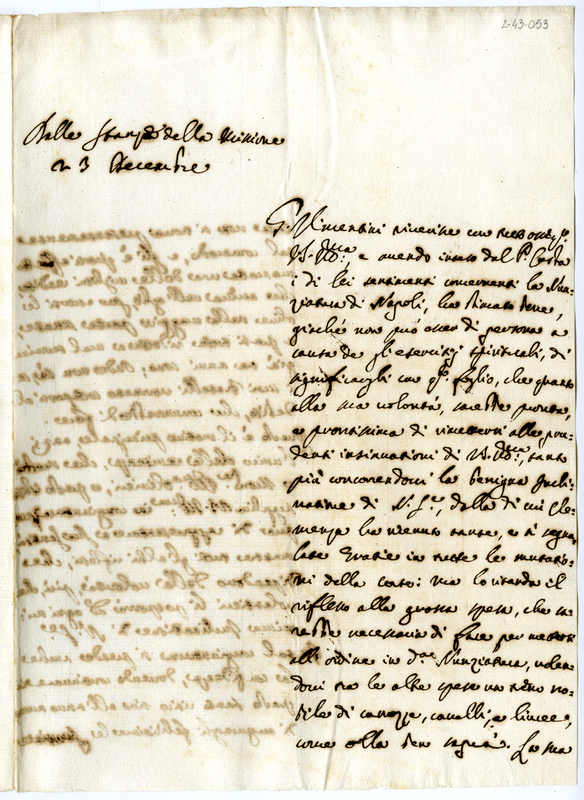 2-43-053
Dalle Stanze della Missione
a 3 Decembre
G. Vincentini riverisce con
V. Ill.ma, e avendo inteso dal P. Costa
i di lei sentimenti concernenti la Nun-
ziatura di Napoli, ha stimato bene,
giache non può esser di persona a
causa de gl'esercitij spirituali, di
significargli con q.o foglio, che quanto
alla sua volontà, sarebbe pronta,
e prontissima di rimettersi alle pru-
denti insinuationi di V. Ill.ma, tanto
più concorrendoci la benigna Incli-
natione di N. S.re, dalla di cui cle-
menza ha ricevuto tante, e sì segna-
late Gratie in tutte le mutatio-
ni della corte: ma lo ritarda il
riflesso alla grossa spesa, che sa-
rebbe necessario di fare per mettersi
all'ordine in d.a Nunziatura, volen-
doci tra le altre spese un treno no-
bile di carozze, cavalli, e livree,
come ella ben sa. La sua